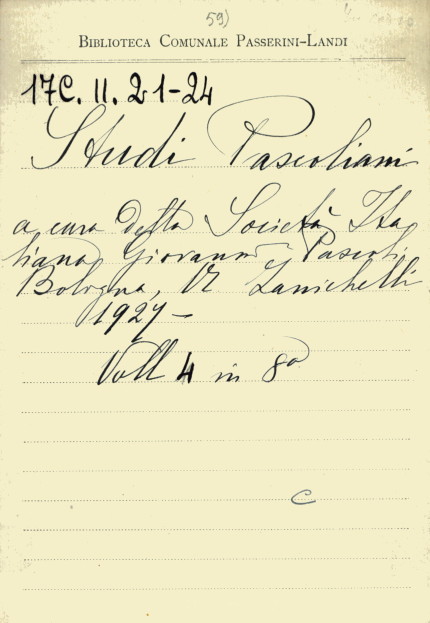 59)
BIBLIOTECA COMUNALE PASSERINI-LANDI
17C. II. 21-24
Studi Pascoliani
a cura della Società Ita
liana Giovanni Pascoli
Bologna, N. Zanichelli
1927 —
Voll 4 in 8º
C